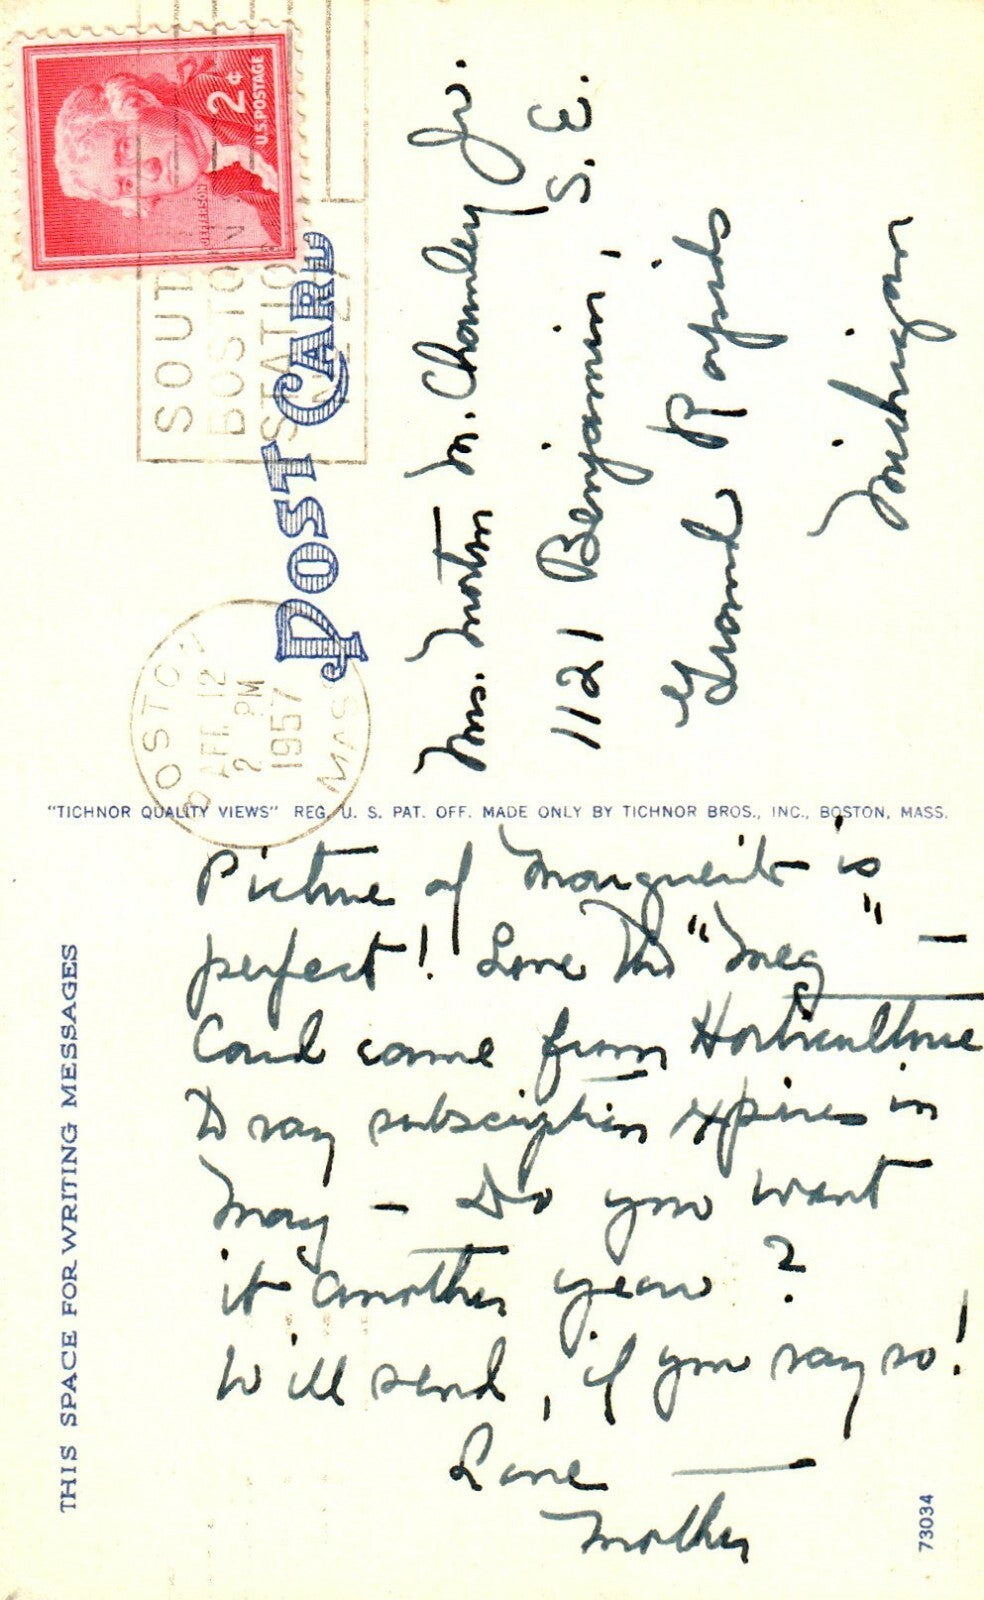 THIS SPACE FOR WRITING MESSAGES
Picture of Marguerite is
perfect! Love the "Meg" —
Card came from Horticulture
To say subscription expires in
May — Do you want
it another year?
Will send, if you say so!
Love —
Mother
73034
"TICHNOR QUALITY VIEWS" REG. U. S. PAT. OFF. MADE ONLY BY TICHNOR BROS., INC., BOSTON, MASS.
POST CARD
BOSTON
APR 12
2 PM
1957
MASS
SOUTH
BOSTON
STATION
2¢
U.S. POSTAGE
JEFFERSON
Mrs. Morton M. Chamley Jr.
1121 Benjamin, S.E.
Grand Rapids
Michigan